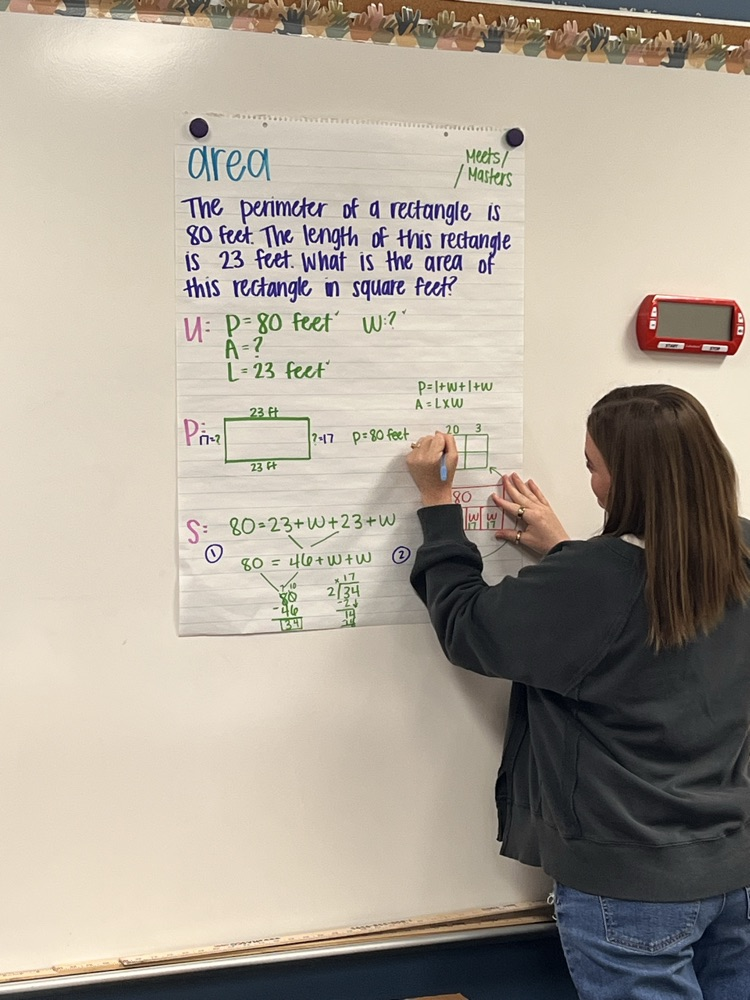 area
Meets/
/Masters
The perimeter of a rectangle is
80 feet. The length of this rectangle
is 23 feet. What is the area of
this rectangle in square feet?
U: P = 80 feet W:?
A = ?
L = 23 feet
P=l+W+l+W
A = LxW
P:
23 ft
17=?
?=17
23 ft
P=80 feet
20 3
80
W W
17 17
S: 80=23+W+23+W
① 80 = 46+W+W
②
7 10
80
-46
34
17
2 34
-2
14
14
START STOP